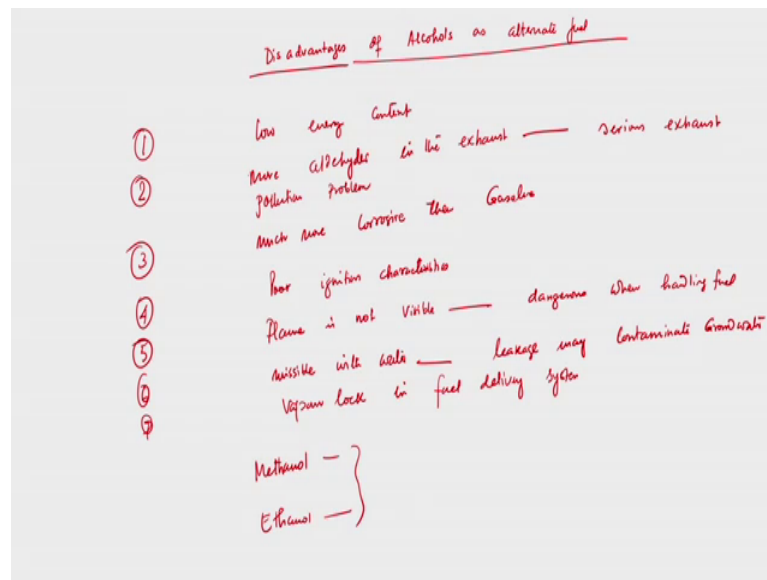 Disadvantages of Alcohols as alternate fuel
① Low energy content
② More aldehydes in the exhaust — serious exhaust
pollution problem
③ Much more corrosive than Gasoline
④ Poor ignition characteristics
⑤ Flame is not visible — dangerous when handling fuel
⑥ missible with water — leakage may contaminate Groundwater
⑦ Vapour lock in fuel delivery system
Methanol —
Ethanol —